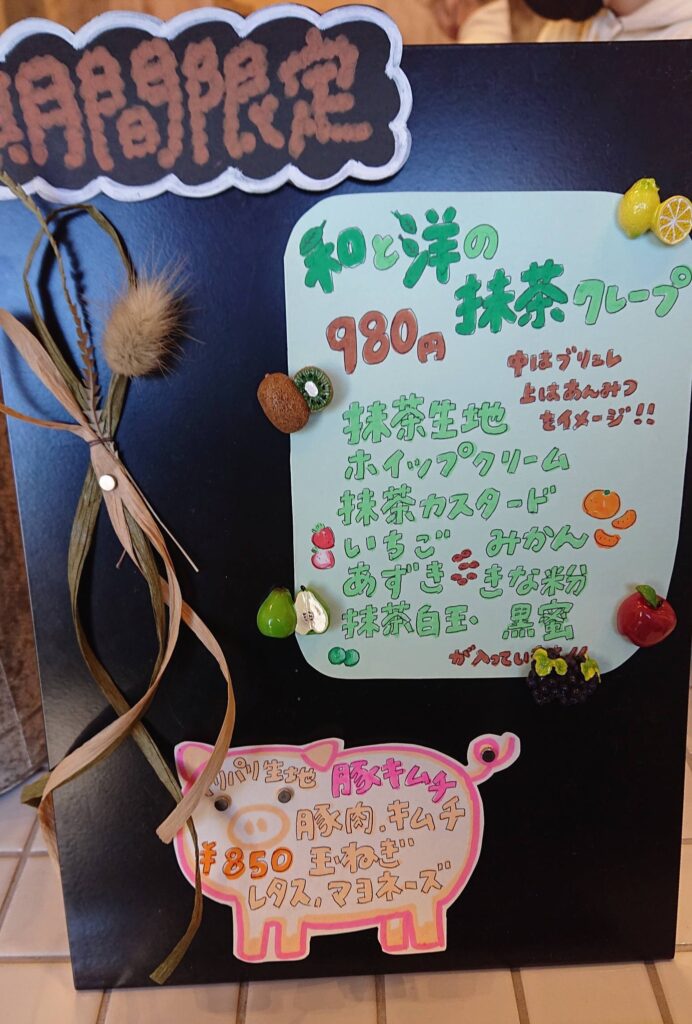 期間限定
和と洋の
抹茶クレープ
980円
中はブリュレ
上はあんみつ
をイメージ!!
抹茶生地
ホイップクリーム
抹茶カスタード
いちご みかん
あずき きな粉
抹茶白玉 黒蜜
が入って
パリパリ生地 豚キムチ
豚肉、キムチ
¥850 玉ねぎ
レタス、マヨネーズ